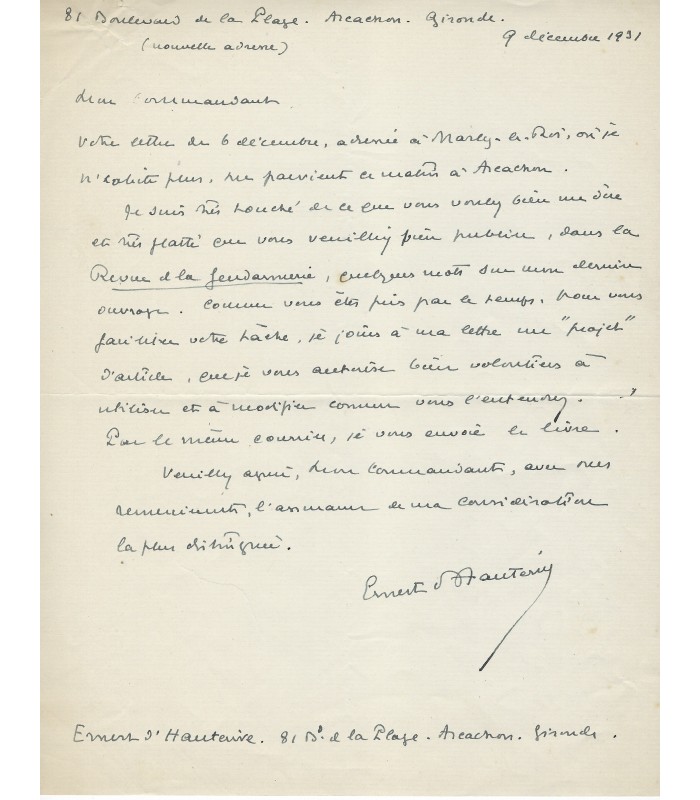 81 Boulevard de la Plage. Arcachon. Gironde.
(nouvelle adresse)
9 décembre 1931
Mon Commandant
Votre lettre du 6 décembre, adressée à Marly-le-Roi, où je
n'habite plus, me parvient ce matin à Arcachon.
Je suis très touché de ce que vous voulez bien me dire
et très flatté que vous veuillez bien publier, dans la
Revue de la Gendarmerie, quelques mots sur mon dernier
ouvrage. Comme vous êtes pris par le temps, pour vous
faciliter votre tâche, je joins à ma lettre un "projet"
d'article, que je vous autorise bien volontiers à
utiliser et à modifier comme vous l'entendrez.
Par le même courrier, je vous envoie le livre.
Veuillez agréer, mon Commandant, avec mes
remerciements, l'assurance de ma considération
la plus distinguée.
Ernest d'Hauterive
Ernest d'Hauterive. 81 Bd. de la Plage. Arcachon. Gironde.